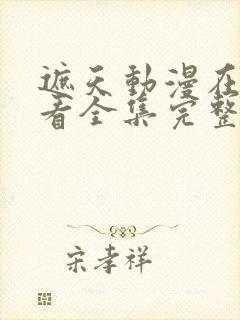 遮天動漫在
看全集完整
宋孝祥